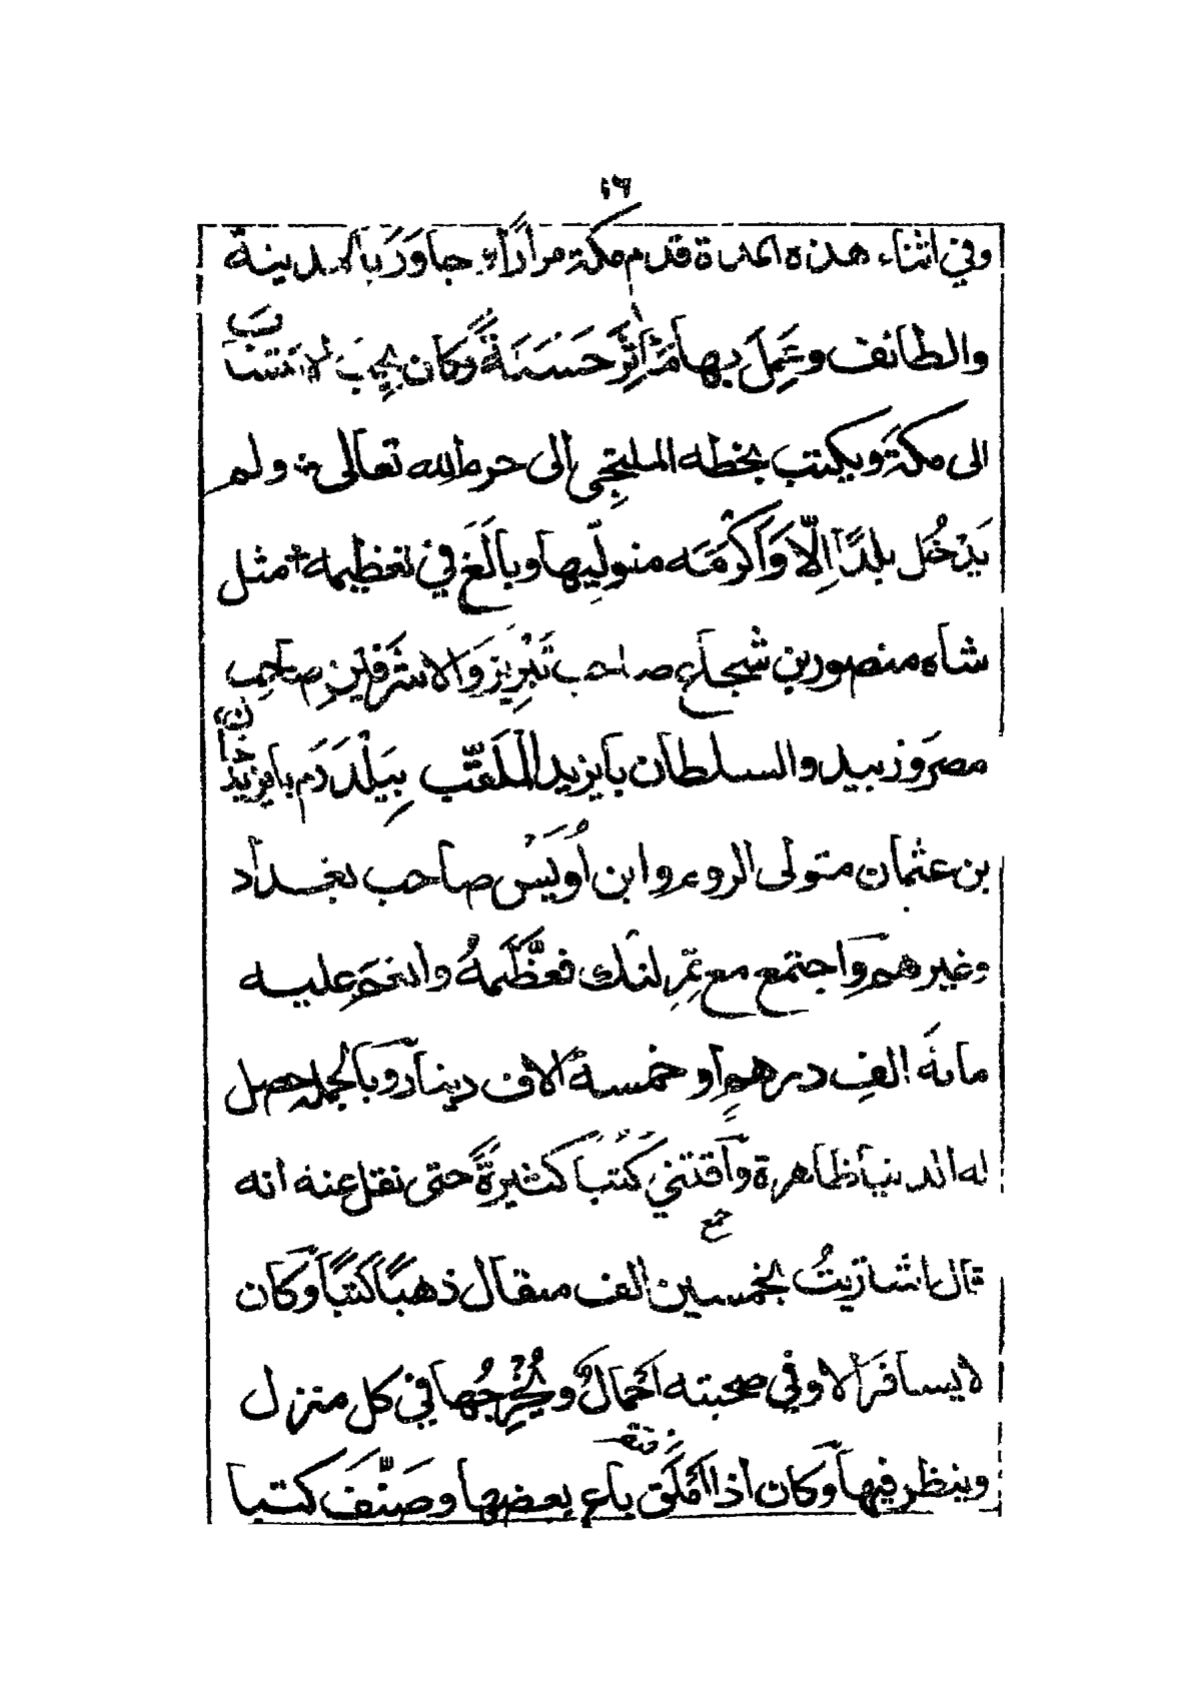 ١٦
وفي اثناء هذه المدة قدم مكة مراراً و جاوَرَ بالمدينة
والطائف وعَمِلَ بها مَآثِرَ حَسَنَةً وكان يحب الانتساب
الى مكة ويكتب بخطه الملتجى الى حرم الله تعالى ولم
يَدْخُل بلدًا اِلّا وَاَكْرَمَه متولِّيها وبالَغَ في تعظيمه مثل
شاه منصور بن شجاع صاحب تَبْرِيز وَالاشرف صاحب
مصر وزبيد والسلطان بايزيد المُلَقَّب بِيَلْدَرَم بايزيد خان
بن عثمان متولى الروم وابن اُوَيْس صاحب بغداد
وغيرهم وَاجتمع مع تمِرلنك فعَظَّمَهُ وانعَمَ عليه
مائة الف درهم او خمسة الاف دينار وبالجملة حصل
له الدنيا ظاهرة وَاقتنى كُتُباً كثيرةً حتى نقل عنه انه
جمع
قال اشتريتُ بخمسين الف مثقال ذهبًا كتباً وكان
لا يسافرُ الا وفي صحبته اَحْمالٌ ويُخْرِجُها في كل منزل
وينظر فيها وكان اذا اَمْلَقَ باع بعضها وصَنَّفَ كتبا
افتقر